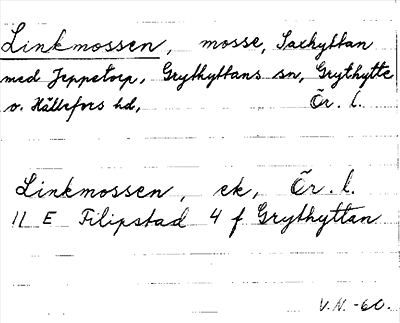 Linkmossen, mosse, Saxhyttan
med Jeppetorp, Grythyttans sn, Grythytte
o. Hällefors hd, Ör. l.
Linkmossen, ek, Ör. l.
11 E Filipstad 4 f Grythyttan
V.N. -60.